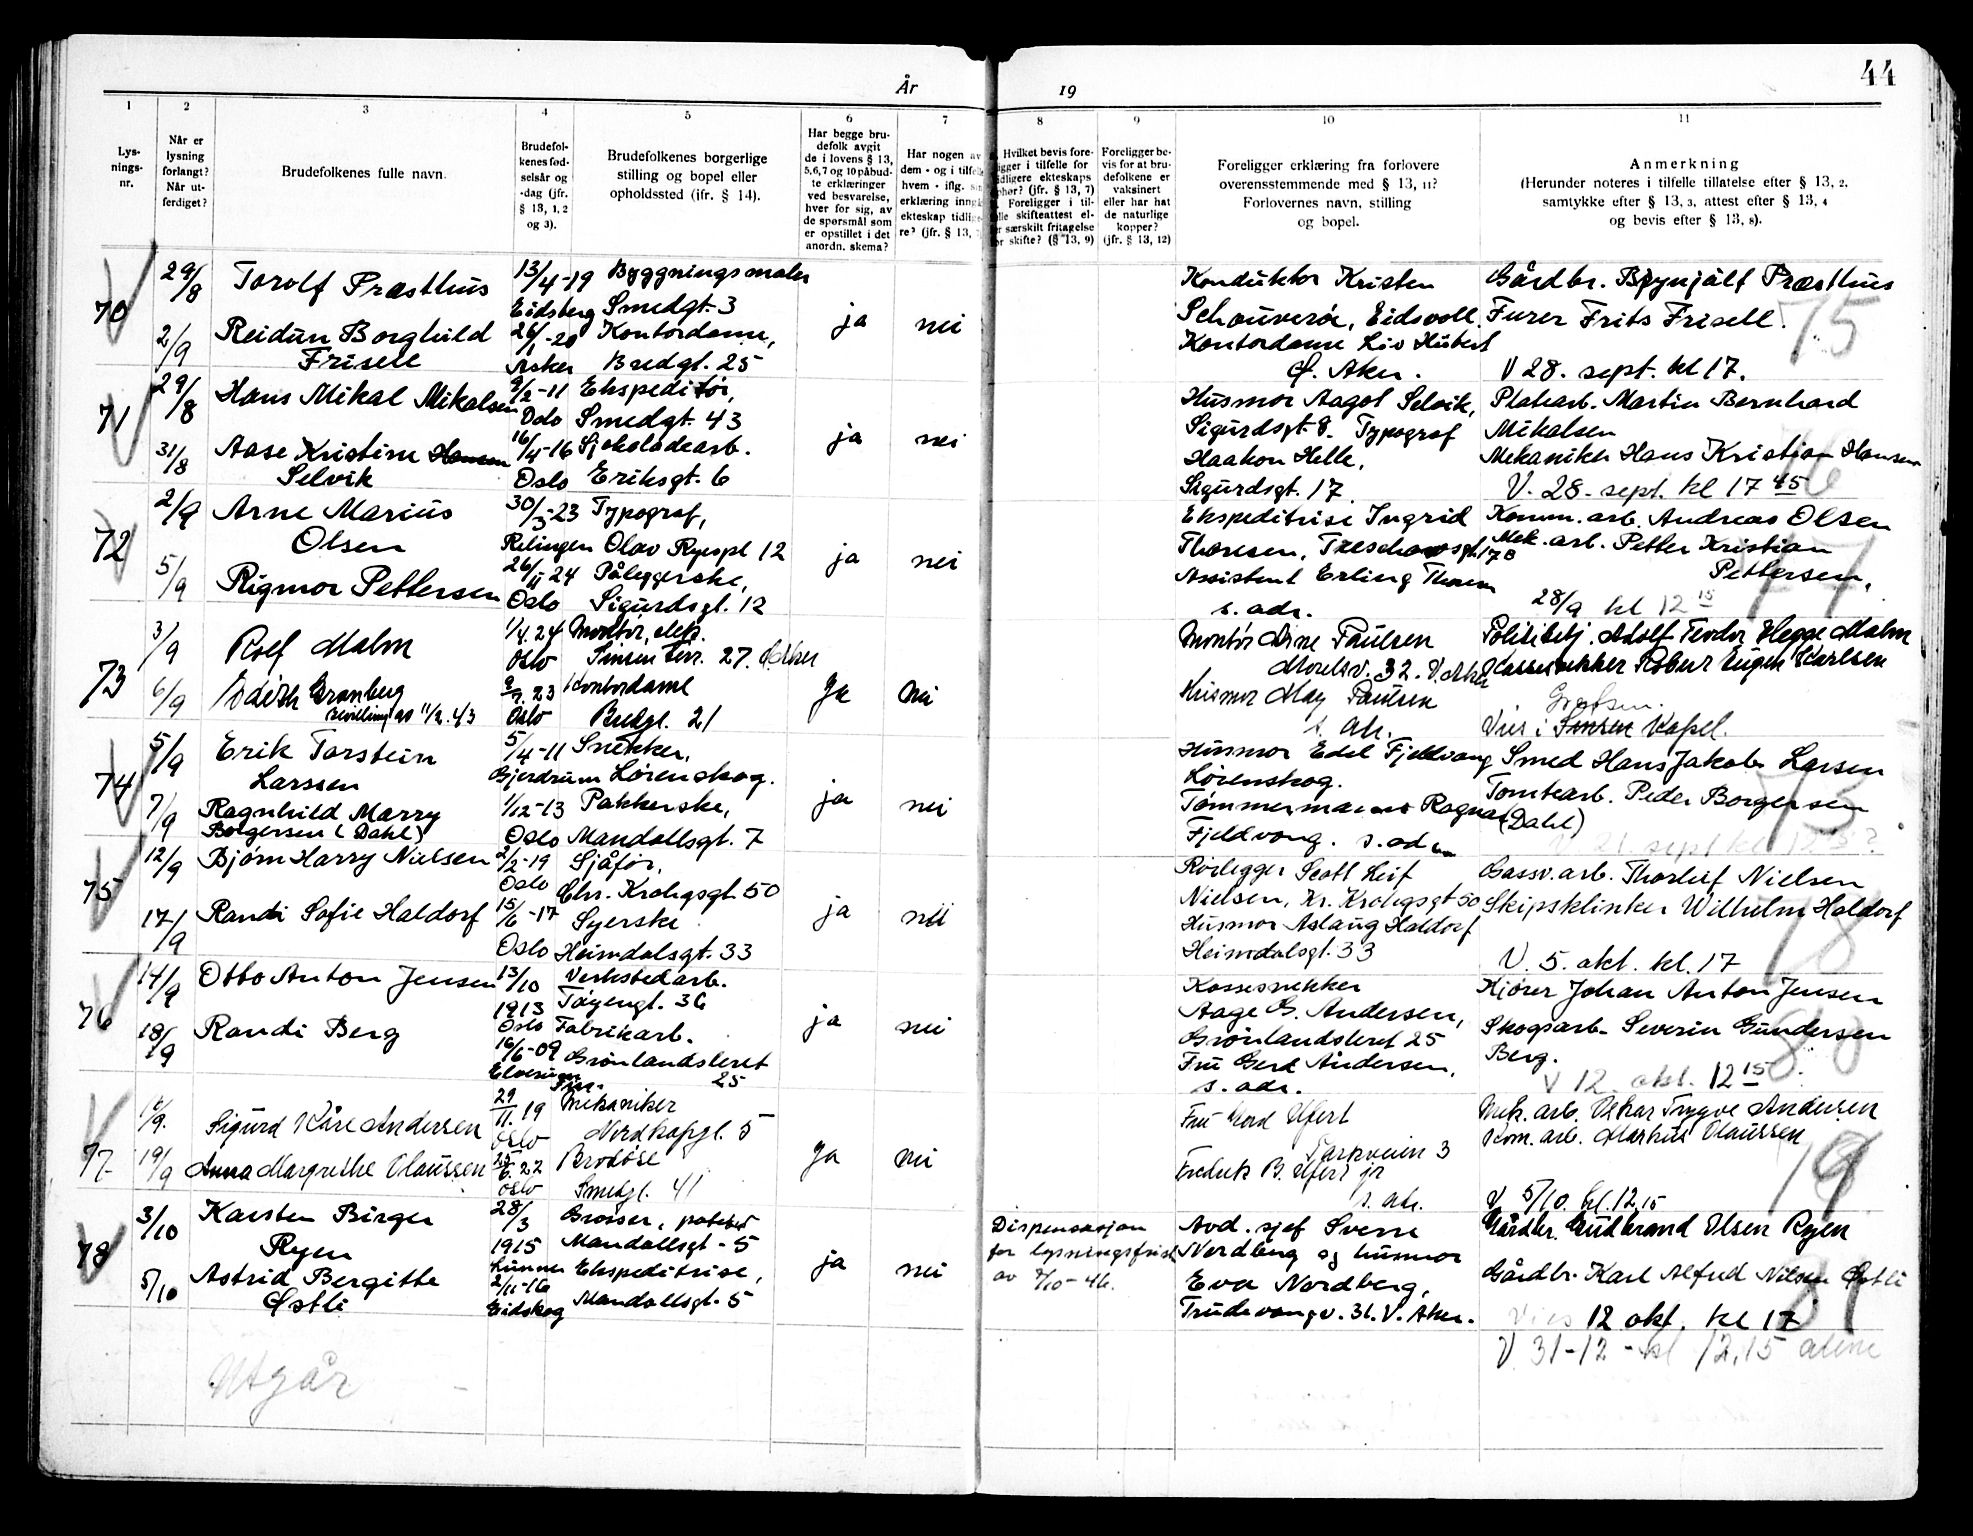 44
År 19
1 2 3 4 5 6 7 8 9 10 11
Lys-
nings-
nr.
Når er
lysning
forlangt?
Når ut-
ferdiget?
Brudefolkenes fulle navn.
Brudefol-
kenes fød-
selsår og
-dag (jfr.
§ 13, 1, 2
og 3).
Brudefolkenes borgerlige
stilling og bopel eller
opholdssted (ifr. § 14).
Har begge bru-
defolk avgit
de i lovens § 13,
5,6,7 og 10 påbud-
te erklæringer
ved besvarelse,
hver for sig, av
de spørsmål som
er opstillet i det
anordn. skema?
Har nogen av
dem - og i tilfelle
hvem - iflg.
erklæring inngå
ekteskap tidlige-
re? (jfr. § 13,
Hvilket bevis fore-
igger i tilfelle for
idligere ekteskaps
phør? (jfr. § 13, 7)
Foreligger i til-
lle skifteattest el-
r særskilt fritagelse
or skifte? (§ 13, 9)
Foreligger be-
vis for at bru-
defolkene er
vaksinert
eller har hat
de naturlige
kopper?
(jfr. § 13, 12)
Foreligger erklæring fra forlovere
overensstemmende med § 13, 11?
Forlovernes navn, stilling
og bopel.
Anmerkning
(Herunder noteres i tilfelle tillatelse efter § 13, 2.
samtykke efter § 13, 3, attest efter § 13, 4
og bevis efter § 13, 8).
70
29/8
2/9
Torolf Præsthus
Reidun Borghild
Frisell
13/4-19
Eidsberg
26/1-20
Asker
Byggningsmaler
Smedgt. 3
Kontordame,
Bredgt. 25
ja nei
Konduktør Kristen
Schouverøe, Eidsvoll.
Kontordame Liv Hubert
Ø. Aker.
Gårdbr. Brynjulf Præsthus
Furer Frits Frisell.
V 28. sept. kl 17.
75
71
29/8
31/8
Hans Mikal Mikalsen
Aase Kristine Hansen
Selvik
9/2-11
Oslo
16/4-16
Oslo
Ekspeditør,
Smedgt. 43
Sjokoladearb.
Eriksgt. 6
ja nei
Husmor Aagot Selvik,
Sigurdsgt. 8. Typograf
Haakon Helle,
Sigurdsgt. 17.
Platearb. Martin Bernhard
Mikalsen
Mekaniker Hans Kristian Hansen
V. 28. sept. kl 17 45
72
2/9
5/9
Arne Marius
Olsen
Rigmor Pettersen
30/3-23
Relingen
26/11 24
Oslo
Typograf,
Olav Ryespl 12
Påleggerske,
Sigurdsgt. 12
ja nei
Ekspeditrise Ingrid
Thoresen, Treschowsgt. 17 B
Assistent Erling Thoresen
s. adr.
Komm. arb. Andreas Olsen
Mek. arb. Petter Kristian
Pettersen,
28/9 kl 12 15
77
73
3/9
6/9
Rolf Malm
Edith Granberg
bevilling av 11/2. 43
1/4. 24
Oslo
9/7. 23
Oslo
Montør, elek.
Sinsen terr. 27. Aker
Kontordame
Bredgt. 21
Ja Nei
Montør Arne Paulsen
Morelsv. 32. V. Aker
Husmor May Paulsen
s. adr.
Politibetj. Adolf Teodor Hegge Malm
Kassesnekker Robert Eugen Karlsen
Grefsen.
Vies i Sinsen Kapel.
74
5/9
7/9
Erik Torstein
Larssen
Ragnhild Marry
Borgersen (Dahl)
5/4-11
Gjerdrum
1/12-13
Oslo
Snekker,
Lørenskog.
Pakkerske,
Mandallsgt. 7
ja nei
Husmor Edel Fjeldvang
Lørenskog.
Tømmermann Ragnar
Fjeldvang. s. adr.
Smed Hans Jakob Larsen
Tomtearb. Peder Borgersen
(Dahl)
V 21. sept kl 12 15?
75
12/9
17/9
Bjørn Harry Nielsen
Randi Sofie Haldorf
2/2-19
Oslo
15/6-17
Oslo
Sjåfør,
Chr. Krohgsgt. 50
Syerske
Heimdalsgt. 33
ja nei
Rørlegger Scott Leif
Nielsen, Kr. Krohgsgt 50
Husmor Aslaug Haldorf
Heimdalsgt. 33
Gassv. arb. Thorleif Nielsen
Skipsklinker Wilhelm Haldorf
V. 5. okt. kl. 17
78
76
14/9
18/9
Otto Anton Jensen
Randi Berg
13/10
1913
Oslo
16/6-09
Elverum
Verkstedarb.
Tøyengt. 36
Fabrikarb.
Grønlandsleret
25
ja nei
Kassesnekker
Aage G. Andersen,
Grønlandsleret 25
Fru Gerd Andersen,
s. adr.
Kjører Johan Anton Jensen
Skogsarb. Severin Gundersen
Berg.
V 12. okt. 12 15
80
77
19/9
Sigurd Kåre Andersen
Anna Margrethe Olaussen
29/11. 19
Oslo
25/6. 22
Oslo
Mekaniker
Nordkapgt. 5
Brodøse
Smedgt. 41
Ja Nei
Parkveien 3
s. adr.
Mek. arb. Oskar Trygve Andersen
Kom. arb. Markus Olaussen
V. 5/10. kl. 12.15
79
78
3/10
5/10
Karsten Birger
Ryen
Astrid Bergitte
Østli
28/3
1915
Lunner
2/11-16
Eidskog
Grosser,
Mandallsgt - 5
Ekspeditrise,
Mandallsgt. 5
ja nei
Dispensasjon
for lysningsfrist
av 7/10-46.
Avd. sjef Sverre
Nordberg og husmor
Eva Nordberg,
Trudvangv. 31. V. Aker.
Gårdbr. Gudbrand Olsen Ryen
Gårdbr. Karl Alfred Nilsen Østli
Vies 12 okt. kl 17
81
V. 31-12 - kl 12.15 alene
Utgår